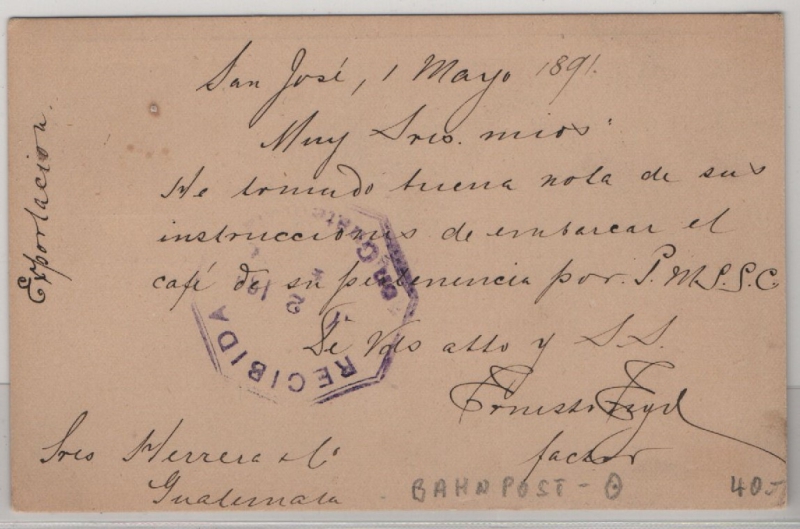 San José, 1 Mayo 1891.
Muy Sres. mios
He tomado buena nota de sus
instrucciones de embarcar el
café de su pertenencia por P.M.S.S.C.
De Vds atto y S.S.
Ernesto
factor
Sres Herrera & Co
Guatemala
Exportacion.
RECIBIDA
BAHNPOST -
40.-